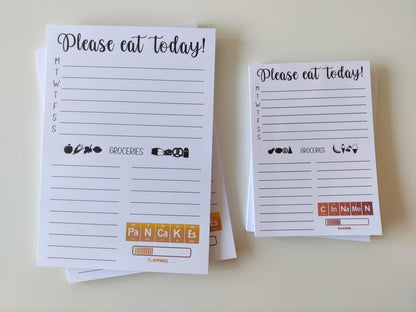 Please eat today!
M
T
W
T
F
S
S
GROCERIES
Pa N Ca K Es
FLIPPING...
Please eat today!
M
T
W
T
F
S
S
GROCERIES
C In Na Mo N
BAKING...